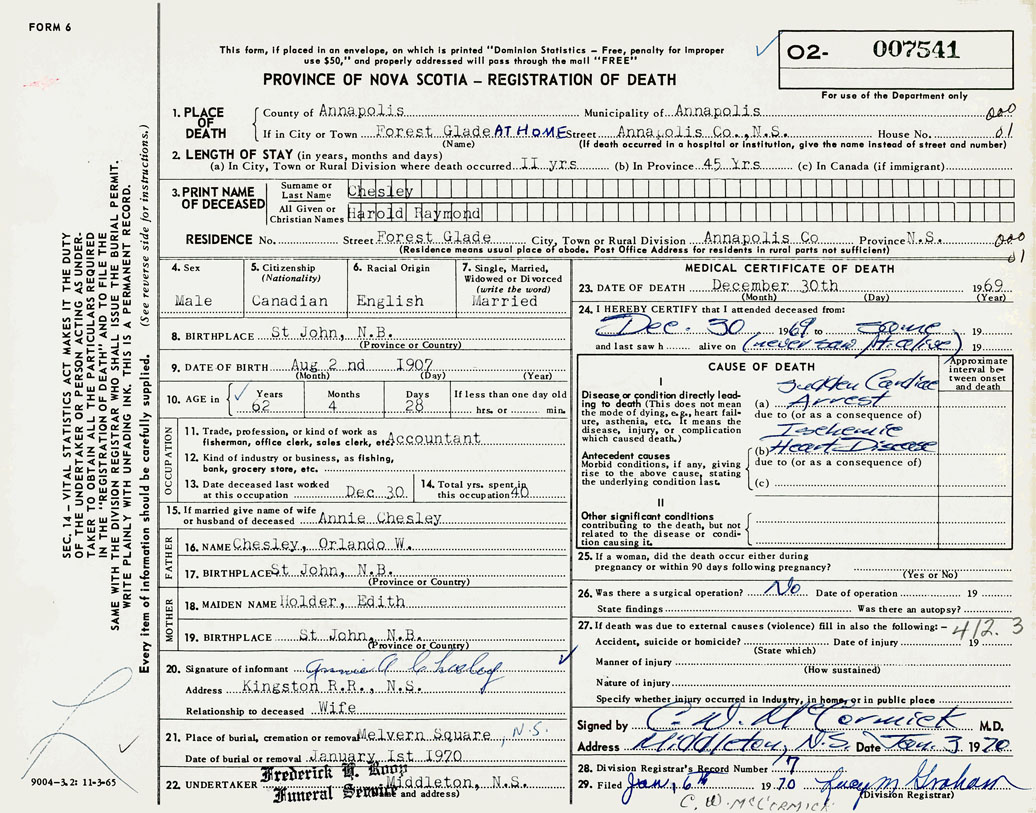 FORM 6
This form, if placed in an envelope, on which is printed "Dominion Statistics – Free, penalty for improper
use $50," and properly addressed will pass through the mail "FREE"
PROVINCE OF NOVA SCOTIA – REGISTRATION OF DEATH
02- 007541
For use of the Department only
1. PLACE OF DEATH
County of Annapolis Municipality of Annapolis 000
If in City or Town Forest Glade AT HOME Street Annapolis Co., N.S. House No. 01
(Name) (If death occurred in a hospital or institution, give the name instead of street and number)
2. LENGTH OF STAY (in years, months and days)
(a) In City, Town or Rural Division where death occurred 11 yrs (b) In Province 45 Yrs (c) In Canada (if immigrant)
3. PRINT NAME OF DECEASED
Surname or Last Name Chesley
All Given or Christian Names Harold Raymond
RESIDENCE No. Street Forest Glade City, Town or Rural Division Annapolis Co Province N.S. 000
(Residence means usual place of abode. Post Office Address for residents in rural parts not sufficient) 01
4. Sex
Male
5. Citizenship
(Nationality)
Canadian
6. Racial Origin
English
7. Single, Married,
Widowed or Divorced
(write the word)
Married
8. BIRTHPLACE St John, N.B.
(Province or Country)
9. DATE OF BIRTH Aug 2 nd 1907
(Month) (Day) (Year)
10. AGE in Years Months Days If less than one day old
62 4 28 hrs. or min.
OCCUPATION
11. Trade, profession, or kind of work as
fisherman, office clerk, sales clerk, etc. Accountant
12. Kind of industry or business, as fishing,
bank, grocery store, etc.
13. Date deceased last worked
at this occupation Dec 30
14. Total yrs. spent in
this occupation 40
15. If married give name of wife
or husband of deceased Annie Chesley
FATHER
16. NAME Chesley, Orlando W.
17. BIRTHPLACE St John, N.B.
(Province or Country)
MOTHER
18. MAIDEN NAME Holder, Edith
19. BIRTHPLACE St John, N.B.
(Province or Country)
20. Signature of informant Annie A Chesley
Address Kingston R.R., N.S.
Relationship to deceased Wife
21. Place of burial, cremation or removal Melvern Square, N.S.
Date of burial or removal January 1st 1970
22. UNDERTAKER Middleton, N.S.
Frederick H. Roop
Funeral Service
and address)
MEDICAL CERTIFICATE OF DEATH
23. DATE OF DEATH December 30th 1969
(Month) (Day) (Year)
24. I HEREBY CERTIFY that I attended deceased from:
Dec. 30 1969 to same 19
and last saw h alive on (never saw pt. alive) 19
CAUSE OF DEATH
Approximate
interval be-
tween onset
and death
I
Disease or condition directly lead-
ing to death (This does not mean
the mode of dying, e.g., heart fail-
ure, asthenia, etc. It means the
disease, injury, or complication
which caused death.)
Sudden Cardiac
(a) Arrest
due to (or as a consequence of)
Ischemic
(b) Heart Disease
due to (or as a consequence of)
(c)
Antecedent causes
Morbid conditions, if any, giving
rise to the above cause, stating
the underlying condition last.
II
Other significant conditions
contributing to the death, but not
related to the disease or condi-
tion causing it.
25. If a woman, did the death occur either during
pregnancy or within 90 days following pregnancy?
(Yes or No)
26. Was there a surgical operation? No Date of operation 19
State findings Was there an autopsy?
27. If death was due to external causes (violence) fill in also the following: – 412.3
Accident, suicide or homicide? Date of injury 19
(State which)
Manner of injury
(How sustained)
Nature of injury
Specify whether injury occurred in industry, in home, or in public place
Signed by C. W. McCormick M.D.
Address Middleton, N.S. Date Jan. 3 1970
28. Division Registrar's Record Number 17
29. Filed Jan, 6th 1970 Lucy M Graham
(Division Registrar)
C. W. McCORMICK
SEC. 14 – VITAL STATISTICS ACT MAKES IT THE DUTY
OF THE UNDERTAKER OR PERSON ACTING AS UNDER-
TAKER TO OBTAIN ALL THE PARTICULARS REQUIRED
IN THE "REGISTRATION OF DEATH" AND TO FILE THE
SAME WITH THE DIVISION REGISTRAR WHO SHALL ISSUE THE BURIAL PERMIT.
WRITE PLAINLY WITH UNFADING INK. THIS IS A PERMANENT RECORD.
Every item of information should be carefully supplied. (See reverse side for instructions.)
9004-3.2: 11-3-65